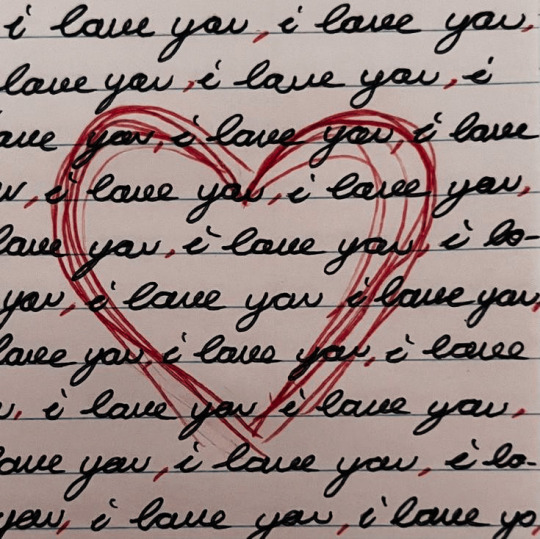 i love you, i love you,
love you, i love you, i
ove you, i love you, i love
u, i love you, i love you,
love you, i love you, i lo-
you, i love you i love you,
love you, i love you, i love
u, i love you, i love you,
ove you, i love you, i lo-
you, i love you, i love yo